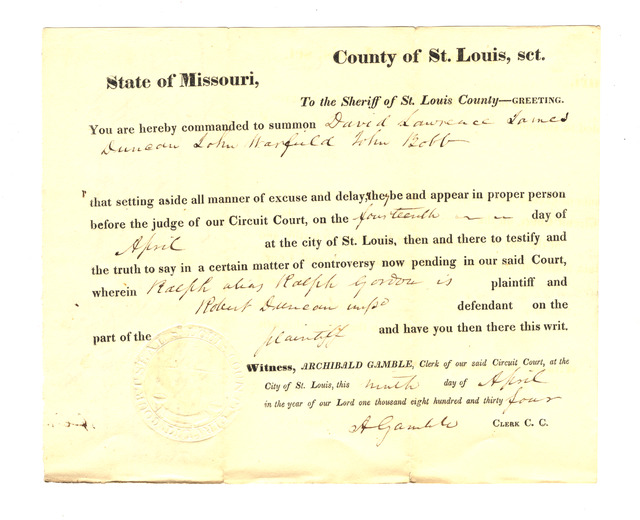 County of St. Louis, sct.
State of Missouri,
To the Sheriff of St. Louis County—GREETING.
You are hereby commanded to summon David Lawrence James
Duncan John Warfield John Bobb
that setting aside all manner of excuse and delay, they be and appear in proper person
before the judge of our Circuit Court, on the fourteenth day of
April at the city of St. Louis, then and there to testify and
the truth to say in a certain matter of controversy now pending in our said Court,
wherein Ralph alias Ralph Gordon is plaintiff and
Robert Duncan defendant on the
part of the plaintiff and have you then there this writ.
Witness, ARCHIBALD GAMBLE, Clerk of our said Circuit Court, at the
City of St. Louis, this ninth day of April
in the year of our Lord one thousand eight hundred and thirty four
A Gamble CLERK C. C.